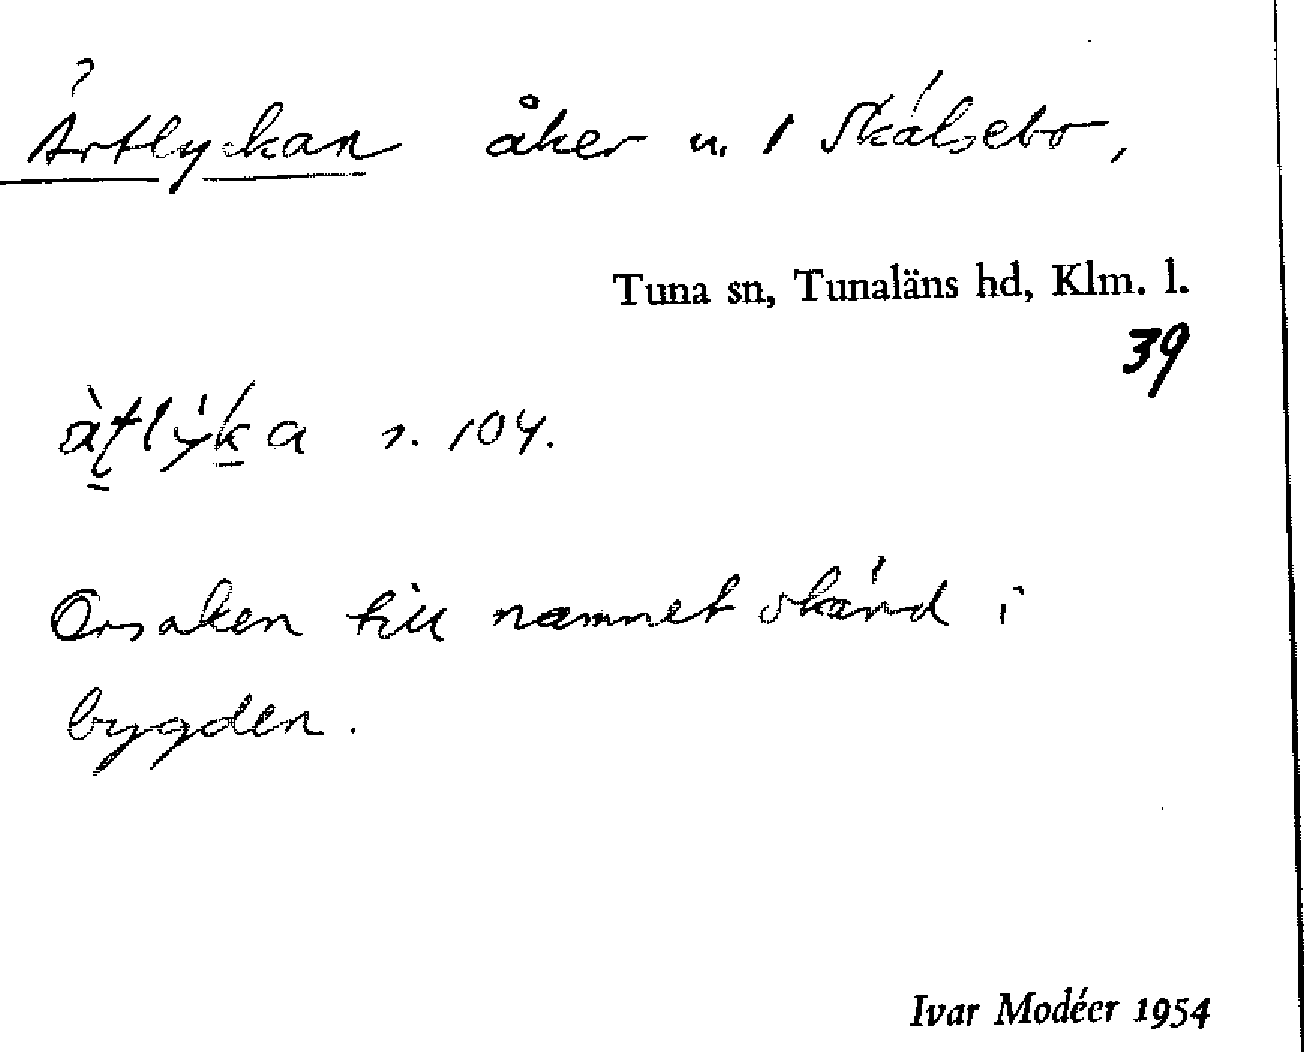 ?
Ärtlyckan åker n. 1 Skälsebo,
Tuna sn, Tunaläns hd, Klm. l.
39
s. 104.
Orsaken till namnet okänd i
bygden.
Ivar Modéer 1954